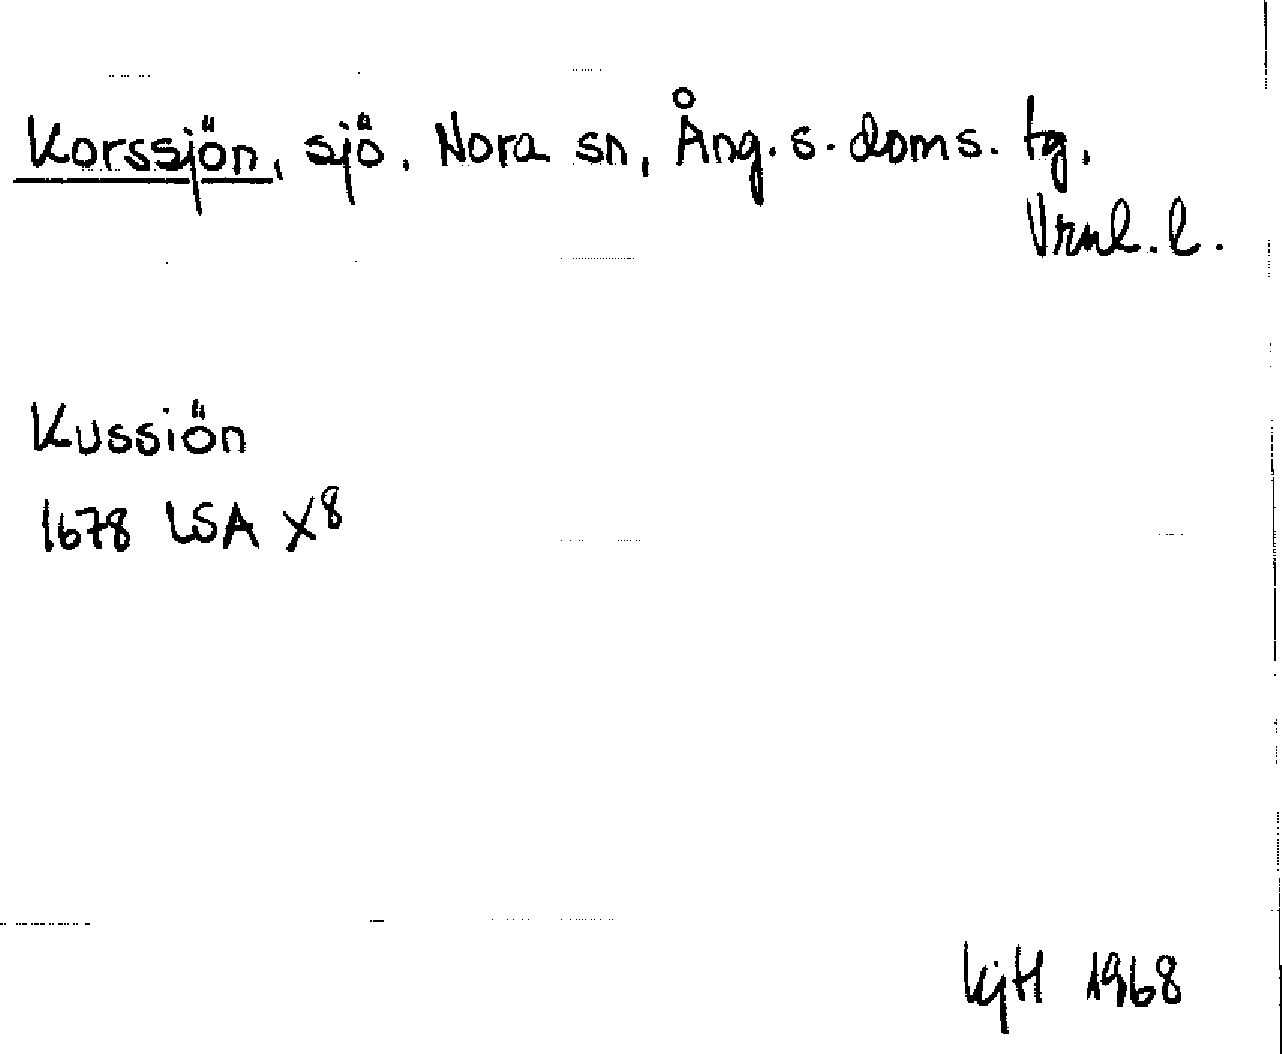 Korssjön, sjö, Nora sn, Ång. s. doms. tg,
Vrnl. l.
Kussiön
1678 LSA X⁸
KjH 1968